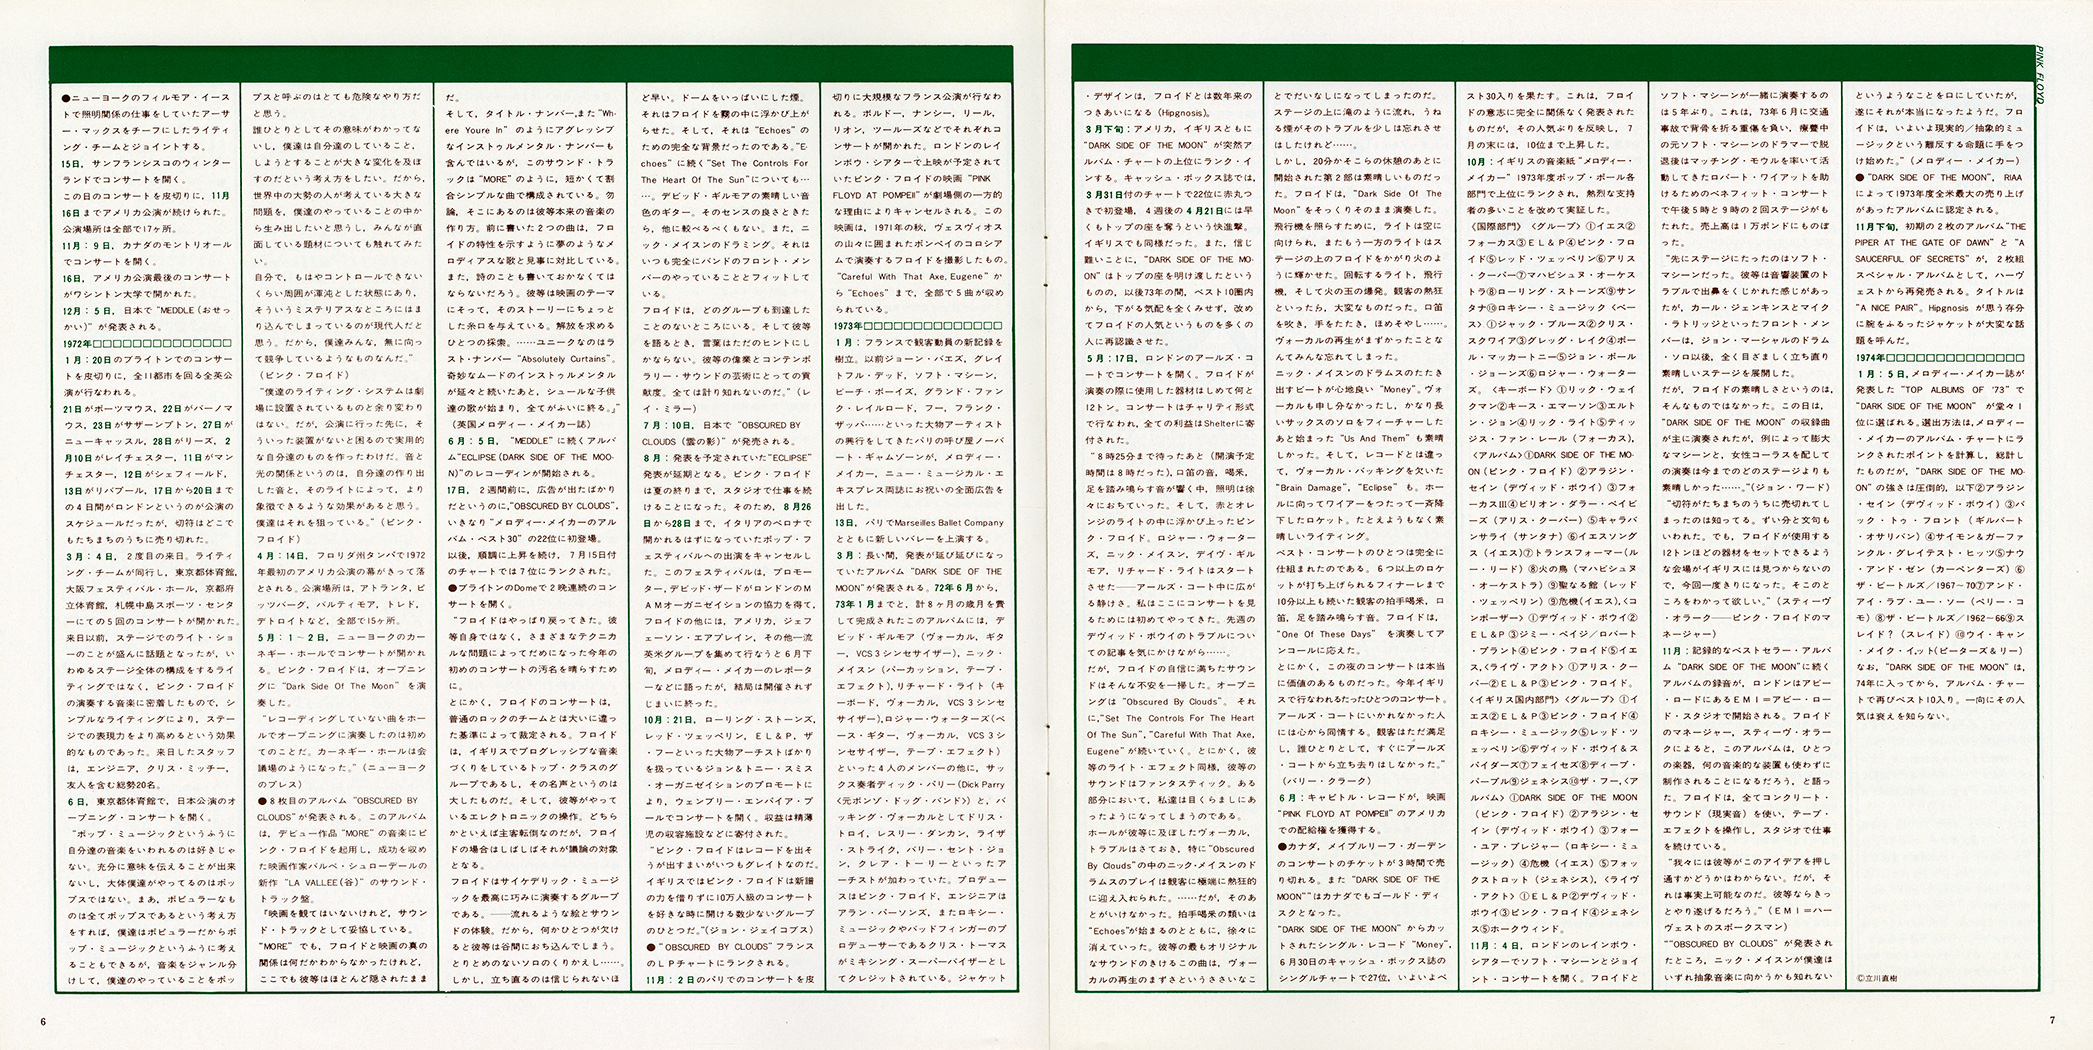 ●ニューヨークのフィルモア・イース
トで照明関係の仕事をしていたアーサ
ー・マックスをチーフにしたライティ
ング・チームとジョイントする。
15日，サンフランシスコのウィンター
ランドでコンサートを開く。
この日のコンサートを皮切りに，11月
16日までアメリカ公演が続けられた。
公演場所は全部で17ヶ所。
11月：9日，カナダのモントリオール
でコンサートを開く。
16日，アメリカ公演最後のコンサート
がワシントン大学で開かれた。
12月：5日，日本で“MEDDLE（おせっ
かい）”が発表される。
1972年□□□□□□□□□□□□□
1月：20日のブライトンでのコンサー
トを皮切りに，全11都市を回る全英公
演が行なわれる。
21日がポーツマウス，22日がバーノマ
ウス，23日がサザーンプトン，27日が
ニューキャッスル，28日がリーズ，2
月10日がレイチェスター，11日がマン
チェスター，12日がシェフィールド，
13日がリバプール，17日から20日まで
の4日間がロンドンというのが公演の
スケジュールだったが，切符はどこで
もたちまちのうちに売り切れた。
3月：4日，2度目の来日。ライティ
ング・チームが同行し，東京都体育館，
大阪フェスティバル・ホール，京都府
立体育館，札幌中島スポーツ・センタ
ーにての5回のコンサートが開かれた。
来日以前，ステージでのライト・ショ
ーのことが盛んに話題となったが，い
わゆるステージ全体の構成をするライ
ティングではなく，ピンク・フロイド
の演奏する音楽に密着したもので，シ
ンプルなライティングにより，ステー
ジでの表現力をより高めるという効果
的なものであった。来日したスタッフ
は，エンジニア，クリス・ミッチー，
友人を含む総勢20名。
6日，東京都体育館で，日本公演のオ
ープニング・コンサートを開く。
“ポップ・ミュージックというふうに
自分達の音楽をいわれるのは好きじゃ
ない。充分に意味を伝えることが出来
ないし，大体僕達がやってるのはポッ
プスではない。まあ，ポピュラーなも
のは全てポップスであるという考え方
をすれば，僕達はポピュラーだからポ
ップ・ミュージックというふうに考え
ることもできるが，音楽をジャンル分
けして，僕達のやっていることをポッ
プスと呼ぶのはとても危険なやり方だ
と思う。
誰ひとりとしてその意味がわかってな
いし，僕達は自分達のしていること，
しようとすることが大きな変化を及ぼ
すのだという考え方をしたい。だから，
世界中の大勢の人が考えている大きな
問題を，僕達のやっていることの中か
ら生み出したいと思うし，みんなが直
面している題材についても触れてみた
い。
自分で，もはやコントロールできない
くらい周囲が渾沌とした状態にあり，
そういうミステリアスなところにはま
り込んでしまっているのが現代人だと
思う。だから，僕達みんな，無に向っ
て競争しているようなものなんだ。”
（ピンク・フロイド）
“僕達のライティング・システムは劇
場に設置されているものと余り変わり
はない。だが，公演に行った先に，そ
ういった装置がないと困るので実用的
な自分達のものを作ったわけだ。音と
光の関係というのは，自分達の作り出
した音と，そのライトによって，より
象徴できるような効果があると思う。
僕達はそれを狙っている。”（ピンク・
フロイド）
4月：14日，フロリダ州タンパで1972
年最初のアメリカ公演の幕がきって落
とされる。公演場所は，アトランタ，ピ
ッツバーグ，バルティモア，トレド，
デトロイトなど，全部で15ヶ所。
5月：1～2日，ニューヨークのカー
ネギー・ホールでコンサートが開かれ
る。ピンク・フロイドは，オープニン
グに“Dark Side Of The Moon”を演
奏した。
“レコーディングしていない曲をホー
ルでオープニングに演奏したのは初め
てのことだ。カーネギー・ホールは会
議場のようになった。”（ニューヨーク
のプレス）
●8枚目のアルバム“OBSCURED BY
CLOUDS”が発表される。このアルバム
は，デビュー作品“MORE”の音楽にピ
ンク・フロイドを起用し，成功を収め
た映画作家バルベ・シュローデールの
新作“LA VALLEE（谷）”のサウンド・
トラック盤。
『映画を観てはいないけれど，サウン
ド・トラックとして妥協している。
“MORE”でも，フロイドと映画の真の
関係は何だかわからなかったけれど，
ここでも彼等はほとんど隠されたまま
だ。
そして，タイトル・ナンバー，また“Wh-
ere Youre In”のようにアグレッシブ
なインストゥルメンタル・ナンバーも
含んではいるが，このサウンド・トラ
ックは“MORE”のように，短かくて割
合シンプルな曲で構成されている。勿
論，そこにあるのは彼等本来の音楽の
作り方。前に書いた2つの曲は，フロ
イドの特性を示すように夢のようなメ
ロディアスな歌と見事に対比している。
また，詩のことも書いておかなくては
ならないだろう。彼等は映画のテーマ
にそって，そのストーリーにちょっと
した糸口を与えている。解放を求める
ひとつの探索。……ユニークなのはラ
スト・ナンバー“Absolutely Curtains”。
奇妙なムードのインストゥルメンタル
が延々と続いたあと，シュールな子供
達の歌が始まり，全てがふいに終る。』
（英国メロディー・メイカー誌）
6月：5日，“MEDDLE”に続くアルバ
ム“ECLIPSE（DARK SIDE OF THE MOO-
N）”のレコーディンが開始される。
17日，2週間前に，広告が出たばかり
だというのに，“OBSCURED BY CLOUDS”，
いきなり“メロディー・メイカーのアル
バム・ベスト30”の22位に初登場。
以後，順調に上昇を続け，7月15日付
のチャートでは7位にランクされた。
●ブライトンのDomeで2晩連続のコン
サートを開く。
“フロイドはやっぱり戻ってきた。彼
等自身ではなく，さまざまなテクニカ
ルな問題によってだめになった今年の
初めのコンサートの汚名を晴らすため
に。
とにかく，フロイドのコンサートは，
普通のロックのチームとは大いに違っ
た基準によって裁定される。フロイド
は，イギリスでプログレッシブな音楽
づくりをしているトップ・クラスのグ
ループであるし，その名声というのは
大したものだ。そして，彼等がやって
いるエレクトロニックの操作。どちら
かといえば主客転倒なのだが，フロイ
ドの場合はしばしばそれが議論の対象
となる。
フロイドはサイケデリック・ミュージ
ックを最高に巧みに演奏するグループ
である。──流れるような絵とサウン
ドの体験。だから，何かひとつが欠け
ると彼等は谷間におち込んでしまう。
とりとめのないソロのくりかえし……。
しかし，立ち直るのは信じられないほ
ど早い。ドームをいっぱいにした煙。
それはフロイドを靄の中に浮かび上が
らせた。そして，それは“Echoes”の
ための完全な背景だったのである。“E-
choes”に続く“Set The Controls For
The Heart Of The Sun”についても…
…。デビッド・ギルモアの素晴しい音
色のギター。そのセンスの良さときた
ら，他に較べるべくもない。また，ニ
ック・メイスンのドラミング。それは
いつも完全にバンドのフロント・メン
バーのやっていることとフィットして
いる。
フロイドは，どのグループも到達した
ことのないところにいる。そして彼等
を語るとき，言葉はただのヒントにし
かならない。彼等の偉業とコンテンポ
ラリー・サウンドの芸術にとっての貢
献度。全ては計り知れないのだ。”（レ
イ・ミラー）
7月：10日，日本で“OBSCURED BY
CLOUDS（雲の影）”が発売される。
8月：発表を予定されていた“ECLIPSE”
発表が延期となる。ピンク・フロイド
は夏の終りまで，スタジオで仕事を続
けることになった。そのため，8月26
日から28日まで，イタリアのベロナで
開かれるはずになっていたポップ・フ
ェスティバルへの出演をキャンセルし
た。このフェスティバルは，プロモー
ター，デビッド・ザードがロンドンのM
AMオーガニゼイションの協力を得て，
フロイドの他には，アメリカ，ジェフ
ェーソン・エアプレイン，その他一流
英米グループを集めて行なうと6月下
旬，メロディー・メイカーのレポータ
ーなどに語ったが，結局は開催されず
じまいに終った。
10月：21日，ローリング・ストーンズ，
レッド・ツェッペリン，EL&P，ザ
・フーといった大物アーチストばかり
を扱っているジョン&トニー・スミス
・オーガニゼイションのプロモートに
より，ウェンブリー・エンパイア・プ
ールでコンサートを開く。収益は精薄
児の収容施設などに寄付された。
“ピンク・フロイドはレコードを出そ
うが出すまいがいつもグレイトなのだ。
イギリスではピンク・フロイドは新譜
の力を借りずに10万人級のコンサート
を好きな時に開ける数少ないグループ
のひとつだ。”（ジョン・ジェイコブス）
●“OBSCURED BY CLOUDS”フランス
のLPチャートにランクされる。
11月：2日のパリでのコンサートを皮
切りに大規模なフランス公演が行なわ
れる。ボルドー，ナンシー，リール，
リオン，ツールーズなどでそれぞれコ
ンサートが開かれた。ロンドンのレイ
ンボウ・シアターで上映が予定されて
いたピンク・フロイドの映画“PINK
FLOYD AT POMPEII”が劇場側の一方的
な理由によりキャンセルされる。この
映画は，1971年の秋，ヴェスヴィオス
の山々に囲まれたポンペイのコロシア
ムで演奏するフロイドを撮影したもの。
“Careful With That Axe, Eugene”か
ら“Echoes”まで，全部で5曲が収め
られている。
1973年□□□□□□□□□□□□□
1月：フランスで観客動員の新記録を
樹立。以前ジョーン・バエズ，グレイ
トフル・デッド，ソフト・マシーン，
ビーチ・ボーイズ，グランド・ファン
ク・レイルロード，フー，フランク・
ザッパ……といった大物アーティスト
の興行をしてきたパリの呼び屋ノーバ
ート・ギャムゾーンが，メロディー・
メイカー，ニュー・ミュージカル・エ
キスプレス両誌にお祝いの全面広告を
出した。
13日，パリでMarseilles Ballet Company
とともに新しいバレーを上演する。
3月：長い間，発表が延び延びになっ
ていたアルバム“DARK SIDE OF THE
MOON”が発表される。72年6月から，
73年1月までと，計8ヶ月の歳月を費
して完成されたこのアルバムには，デ
ビッド・ギルモア（ヴォーカル，ギタ
ー，VCS3シンセサイザー），ニック・
メイスン（パーカッション，テープ・
エフェクト），リチャード・ライト（キ
ーボード，ヴォーカル，VCS3シンセ
サイザー），ロジャー・ウォーターズ（ベ
ース・ギター，ヴォーカル，VCS3シ
ンセサイザー，テープ・エフェクト）
といった4人のメンバーの他に，サッ
クス奏者ディック・パリー（Dick Parry
〈元ボンゾ・ドッグ・バンド〉）と，バ
ッキング・ヴォーカルとしてドリス・
トロイ，レスリー・ダンカン，ライザ
・ストライク，バリー・セント・ジョ
ン，クレア・トーリーといったアー
チストが加わっていた。プロデュー
スはピンク・フロイド，エンジニアは
アラン・パーソンズ，またロキシー・
ミュージックやバッドフィンガーのプ
ロデューサーであるクリス・トーマス
がミキシング・スーパーバイザーとし
てクレジットされている。ジャケット
6
・デザインは，フロイドとは数年来の
つきあいになる（Hipgnosis）。
3月下旬：アメリカ，イギリスともに
“DARK SIDE OF THE MOON”が突然ア
ルバム・チャートの上位にランク・イ
ンする。キャッシュ・ボックス誌では，
3月31日付のチャートで22位に赤丸つ
きで初登場，4週後の4月21日には早
くもトップの座を奪うという快進撃。
イギリスでも同様だった。また，信じ
難いことに，“DARK SIDE OF THE MO-
ON”はトップの座を明け渡したという
ものの，以後73年の間，ベスト10圏内
から，下がる気配を全くみせず，改め
てフロイドの人気というものを多くの
人に再認識させた。
5月：17日，ロンドンのアールズ・コ
ートでコンサートを開く。フロイドが
演奏の際に使用した器材はしめて何と
12トン。コンサートはチャリティ形式
で行なわれ，全ての利益はShelterに寄
付された。
“8時25分まで待ったあと（開演予定
時間は8時だった），口笛の音，喝采，
足を踏み鳴らす音が響く中，照明は徐
々におちていった。そして，赤とオレ
ンジのライトの中に浮かび上ったピン
ク・フロイド。ロジャー・ウォーター
ズ，ニック・メイスン，デイヴ・ギル
モア，リチャード・ライトはスタート
させた──アールズ・コート中に広が
る静けさ。私はここにコンサートを見
るためには初めてやってきた。先週の
デヴィッド・ボウイのトラブルについ
ての記事を気にかけながら……。
だが，フロイドの自信に満ちたサウン
ドはそんな不安を一掃した。オープニ
ングは“Obscured By Clouds”。それ
に，“Set The Controls For The Heart
Of The Sun”，“Careful With That Axe,
Eugene”が続いていく。とにかく，彼
等のライト・エフェクト同様，彼等の
サウンドはファンタスティック。ある
部分において，私達は目くらましにあ
ったようになってしまうのである。
ホールが彼等に及ぼしたヴォーカル，
トラブルはさておき，特に“Obscured
By Clouds”の中のニック・メイスンのド
ラムスのプレイは観客に極端に熱狂的
に迎え入れられた。……だが，そのあ
とがいけなかった。拍手喝采の類いは
“Echoes”が始まるのとともに，徐々に
消えていった。彼等の最もオリジナル
なサウンドのきけるこの曲は，ヴォー
カルの再生のまずさというささいなこ
とでだいなしになってしまったのだ。
ステージの上に滝のように流れ，うね
る煙がそのトラブルを少しは忘れさせ
はしたけれど……。
しかし，20分かそこらの休憩のあとに
開始された第2部は素晴しいものだっ
た。フロイドは，“Dark Side Of The
Moon”をそっくりそのまま演奏した。
飛行機を照らすために，ライトは空に
向けられ，またもう一方のライトはス
テージの上のフロイドをかがり火のよ
うに輝かせた。回転するライト，飛行
機，そして火の玉の爆発。観客の熱狂
といったら，大変なものだった。口笛
を吹き，手をたたき，ほめそやし……。
ヴォーカルの再生がまずかったことな
んてみんな忘れてしまった。
ニック・メイスンのドラムスのたたき
出すビートが心地良い“Money”。ヴォ
ーカルも申し分なかったし，かなり長
いサックスのソロをフィーチャーした
あと始まった“Us And Them”も素晴
しかった。そして，レコードとは違っ
て，ヴォーカル・バッキングを欠いた
“Brain Damage”，“Eclipse”も。ホー
ルに向ってワイアーをつたって一斉降
下したロケット。たとえようもなく素
晴しいライティング。
ベスト・コンサートのひとつは完全に
仕組まれたのである。6つ以上のロケ
ットが打ち上げられるフィナーレまで
10分以上も続いた観客の拍手喝采，口
笛，足を踏み鳴らす音。フロイドは，
“One Of These Days”を演奏してア
ンコールに応えた。
とにかく，この夜のコンサートは本当
に価値のあるものだった。今年イギリ
スで行なわれるたったひとつのコンサート。
アールズ・コートにいかれなかった人
には心から同情する。観客はただ満足
し，誰ひとりとして，すぐにアールズ
・コートから立ち去りはしなかった。”
（バリー・クラーク）
6月：キャピトル・レコードが，映画
“PINK FLOYD AT POMPEII”のアメリカ
での配給権を獲得する。
●カナダ，メイプルリーフ・ガーデン
のコンサートのチケットが3時間で売
り切れる。また“DARK SIDE OF THE
MOON””はカナダでもゴールド・ディ
スクとなった。
“DARK SIDE OF THE MOON”からカッ
トされたシングル・レコード“Money”，
6月30日のキャッシュ・ボックス誌の
シングルチャートで27位，いよいよベ
スト30入りを果たす。これは，フロイ
ドの意志に完全に関係なく発表された
ものだが，その人気ぶりを反映し，7
月の末には，10位まで上昇した。
10月：イギリスの音楽紙“メロディー・
メイカー”1973年度ポップ・ポール各
部門で上位にランクされ，熱烈な支持
者の多いことを改めて実証した。
〈国際部門〉〈グループ〉①イエス②
フォーカス③EL&P④ピンク・フロ
イド⑤レッド・ツェッペリン⑥アリス
・クーパー⑦マハビシュヌ・オーケス
トラ⑧ローリング・ストーンズ⑨サン
タナ⑩ロキシー・ミュージック〈ベー
ス〉①ジャック・ブルース②クリス・
スクワイア③グレッグ・レイク④ポー
ル・マッカートニー⑤ジョン・ポール
・ジョーンズ⑥ロジャー・ウォーター
ズ。〈キーボード〉①リック・ウェイ
クマン②キース・エマーソン③エルト
ン・ジョン④リック・ライト⑤ティッ
ジス・ファン・レール（フォーカス），
〈アルバム〉①DARK SIDE OF THE MO-
ON（ピンク・フロイド）②アラジン・
セイン（デヴィッド・ボウイ）③フォ
ーカスⅢ④ビリオン・ダラー・ベイビ
ーズ（アリス・クーパー）⑤キャラバ
ンサライ（サンタナ）⑥イエスソング
ス（イエス）⑦トランスフォーマー（ル
ー・リード）⑧火の鳥（マハビシュヌ
・オーケストラ）⑨聖なる館（レッド
・ツェッペリン）⑨危機（イエス），〈コ
ンポーザー〉①デヴィッド・ボウイ②
EL&P③ジミー・ペイジ／ロバート
・プラント④ピンク・フロイド⑤イエ
ス，〈ライヴ・アクト〉①アリス・クー
パー②EL&P③ピンク・フロイド。
〈イギリス国内部門〉〈グループ〉①イ
エス②EL&P③ピンク・フロイド④
ロキシー・ミュージック⑤レッド・ツ
ェッペリン⑥デヴィッド・ボウイ&ス
パイダーズ⑦フェイセズ⑧ディープ・
パープル⑨ジェネシス⑩ザ・フー，〈ア
ルバム〉①DARK SIDE OF THE MOON
（ピンク・フロイド）②アラジン・セ
イン（デヴィッド・ボウイ）③フォー
・ユア・プレジャー（ロキシー・ミュ
ージック）④危機（イエス）⑤フォッ
クストロット（ジェネシス），〈ライヴ
・アクト〉①EL&P②デヴィッド・
ボウイ③ピンク・フロイド④ジェネシ
ス⑤ホークウィンド。
11月：4日，ロンドンのレインボウ・
シアターでソフト・マシーンとジョイ
ント・コンサートを開く。フロイドと
ソフト・マシーンが一緒に演奏するの
は5年ぶり。これは，73年6月に交通
事故で背骨を折る重傷を負い，療養中
の元ソフト・マシーンのドラマーで脱
退後はマッチング・モウルを率いて活
動してきたロバート・ワイアットを助
けるためのベネフィット・コンサート
で午後5時と9時の2回ステージがも
たれた。売上高は1万ポンドにものぼ
った。
“先にステージにたったのはソフト・
マシーンだった。彼等は音響装置のト
ラブルで出鼻をくじかれた感じがあっ
たが，カール・ジェンキンスとマイク
・ラトリッジといったフロント・メン
バーは，ジョン・マーシャルのドラム
・ソロ以後，全く目ざましく立ち直り
素晴しいステージを展開した。
だが，フロイドの素晴しさというのは，
そんなものではなかった。この日は，
“DARK SIDE OF THE MOON”の収録曲
が主に演奏されたが，例によって膨大
なマシーンと，女性コーラスを配して
の演奏は今までのどのステージよりも
素晴しかった……。”（ジョン・ワード）
“切符がたちまちのうちに売切れてし
まったのは知ってる。ずい分と文句も
いわれた。でも，フロイドが使用する
12トンほどの器材をセットできるよう
な会場がイギリスには見つからないの
で，今回一度きりになった。そこのと
ころをわかって欲しい。”（スティーヴ
・オラーク──ピンク・フロイドのマ
ネージャー）
11月：記録的なベストセラー・アルバ
ム“DARK SIDE OF THE MOON”に続く
アルバムの録音が，ロンドンはアビー
・ロードにあるEMI＝アビー・ロー
ド・スタジオで開始される。フロイド
のマネージャー，スティーヴ・オラー
クによると，このアルバムは，ひとつ
の楽器，何の音楽的な装置も使わずに
制作されることになるだろう，と語っ
た。フロイドは，全てコンクリート・
サウンド（現実音）を使い，テープ・
エフェクトを操作し，スタジオで仕事
を続けている。
“我々には彼等がこのアイデアを押し
通すかどうかはわからない。だが，そ
れは事実上可能なのだ。彼等ならきっ
とやり遂げるだろう。”（EMI＝ハー
ヴェストのスポークスマン）
““OBSCURED BY CLOUDS”が発表され
たところ，ニック・メイスンが僕達は
いずれ抽象音楽に向かうかも知れない
というようなことを口にしていたが，
遂にそれが本当になったようだ。フロ
イドは，いよいよ現実的／抽象的ミュ
ージックという離反する命題に手をつ
け始めた。”（メロディー・メイカー）
●“DARK SIDE OF THE MOON”，RIAA
によって1973年度全米最大の売り上げ
があったアルバムに認定される。
11月下旬，初期の2枚のアルバム“THE
PIPER AT THE GATE OF DAWN”と“A
SAUCERFUL OF SECRETS”が，2枚組
スペシャル・アルバムとして，ハーヴ
ェストから再発売される。タイトルは
“A NICE PAIR”。Hipgnosisが思う存分
に腕をふるったジャケットが大変な話
題を呼んだ。
1974年□□□□□□□□□□□□□
1月：5日，メロディー・メイカー誌が
発表した“TOP ALBUMS OF '73”で
“DARK SIDE OF THE MOON”が堂々1
位に選ばれる。選出方法は，メロディー
・メイカーのアルバム・チャートにラ
ンクされたポイントを計算し，総計し
たものだが，“DARK SIDE OF THE MO-
ON”の強さは圧倒的，以下②アラジン
・セイン（デヴィッド・ボウイ）③バ
ック・トゥ・フロント（ギルバート
・オサリバン）④サイモン&ガーファ
ンクル・グレイテスト・ヒッツ⑤ナウ
・アンド・ゼン（カーペンターズ）⑥
ザ・ビートルズ／1967～70⑦アンド・
アイ・ラブ・ユー・ソー（ペリー・コ
モ）⑧ザ・ビートルズ／1962～66⑨ス
レイド？（スレイド）⑩ウイ・キャン
・メイク・イット（ピーターズ&リー）
なお，“DARK SIDE OF THE MOON”は，
74年に入ってから，アルバム・チャー
トで再びベスト10入り。一向にその人
気は衰えを知らない。
©立川直樹
PINK FLOYD
7